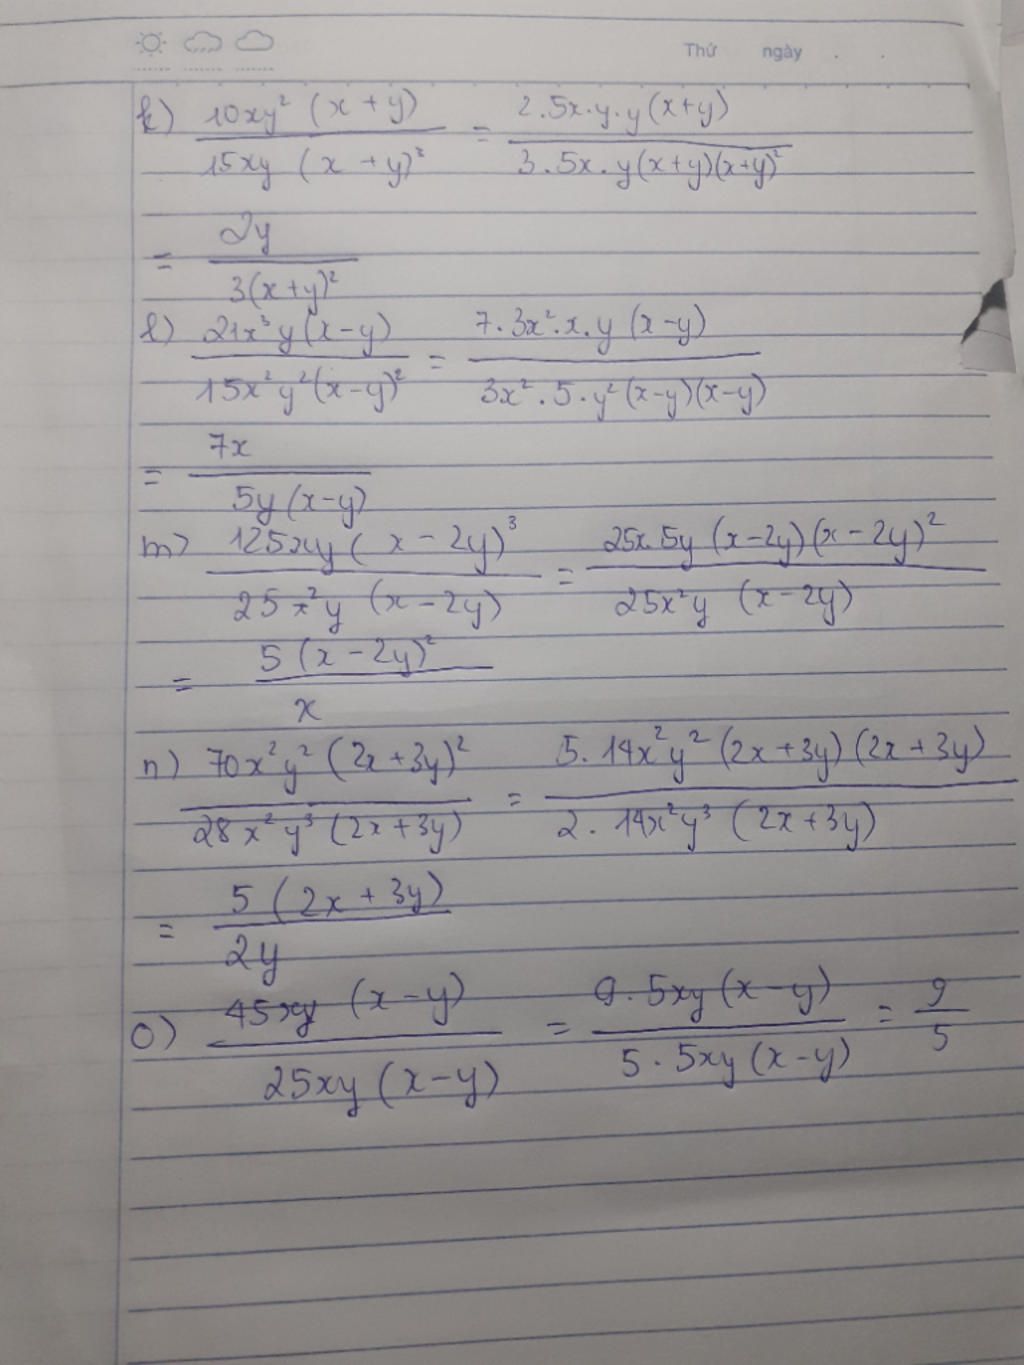 Thứ ngày . .
k) 10xy² (x + y) / 15xy (x + y)³ = 2.5x.y.y(x+y) / 3.5x.y(x+y)(x+y)²
= 2y / 3(x+y)²
l) 21x³y(x-y) / 15x²y²(x-y)² = 7.3x².x.y (x-y) / 3x².5.y²(x-y)(x-y)
= 7x / 5y(x-y)
m) 125xy(x - 2y)³ / 25x²y (x-2y) = 25x.5y (x-2y)(x-2y)² / 25x²y (x-2y)
= 5(x-2y)² / x
n) 70x²y²(2x+3y)² / 28x²y³(2x+3y) = 5.14x²y²(2x+3y)(2x+3y) / 2.14x²y³(2x+3y)
= 5(2x+3y) / 2y
o) 45xy (x-y) / 25xy(x-y) = 9.5xy(x-y) / 5.5xy(x-y) = 9 / 5